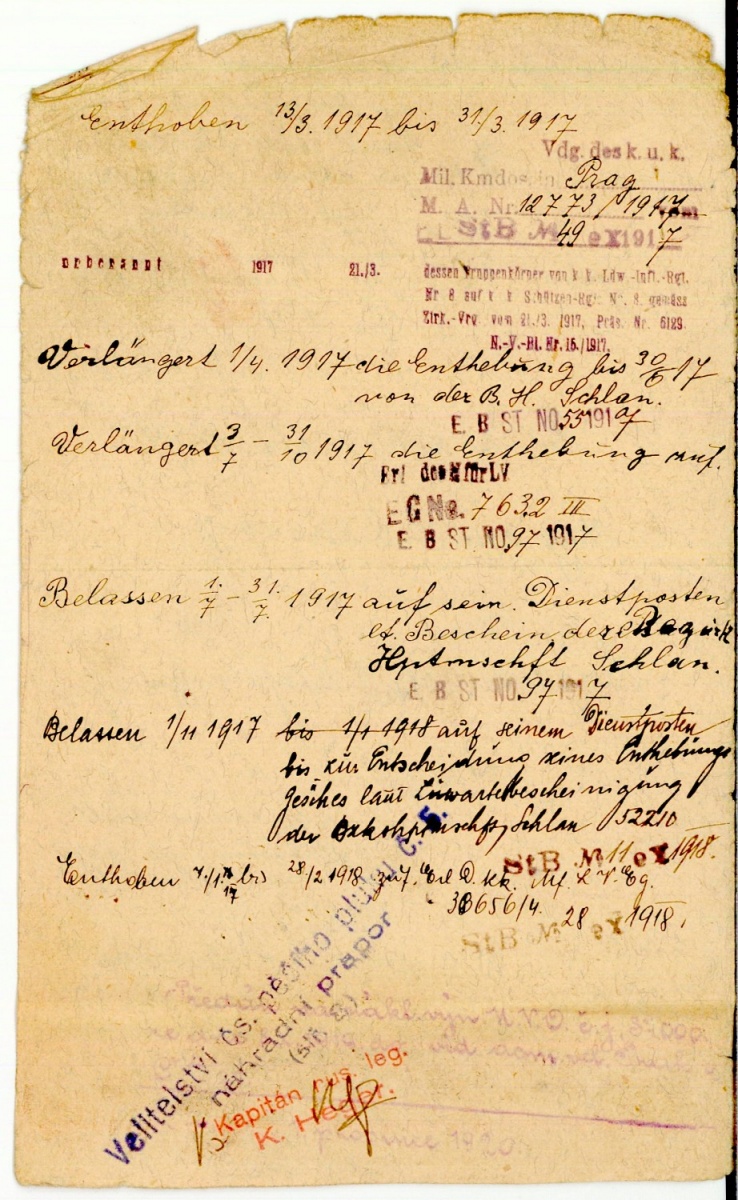 Enthoben 13/3. 1917 bis 31/3. 1917
Vdg. des k. u. k.
Mil. Kmdos in Prag
M. A. Nr. 12773/1917
StB M 49 ex 1917
1917 21./3. dessen Truppenkörper von k. k. Ldw.-Inft.-Rgt.
Nr 8 auf k. k. Schützen-Rgt. Nr. 8. gemäss
Zirk.-Vrg. vom 21./3. 1917, Präs. Nr. 6129.
N.-V.-Bl. Nr. 15./1917.
Verlängert 1/4. 1917 die Enthebung bis 30/6 17
von der B. H. Schlan.
E. B ST NO. 55 1917
Verlängert 3/7 – 31/10 1917 die Enthebung auf.
Erl des M für LV
E G No. 7632 III
E B ST NO. 97 1917
Belassen 1./7 – 31./7. 1917 auf sein. Dienstposten
lt. Beschein. der Bezirk
Hptmschft Schlan.
E B ST NO. 97 1917
Belassen 1/11 1917 bis 1/1 1918 auf seinem Dienstposten
bis zur Entscheidung seines Enthebungs
Gesuches laut Zuwartebescheinigung
der Schlan 52210
StB M 11 ex 1918.
Enthoben bis 28/2 1918 zuf. Erl. d. kk. Mf L V. Eg.
33656/4.
StB M 28 ex 1918.
Velitelství čs. pěšího pluku č. 8.
náhradní prapor
Kapitán rus. leg.
K. Heger.
1920